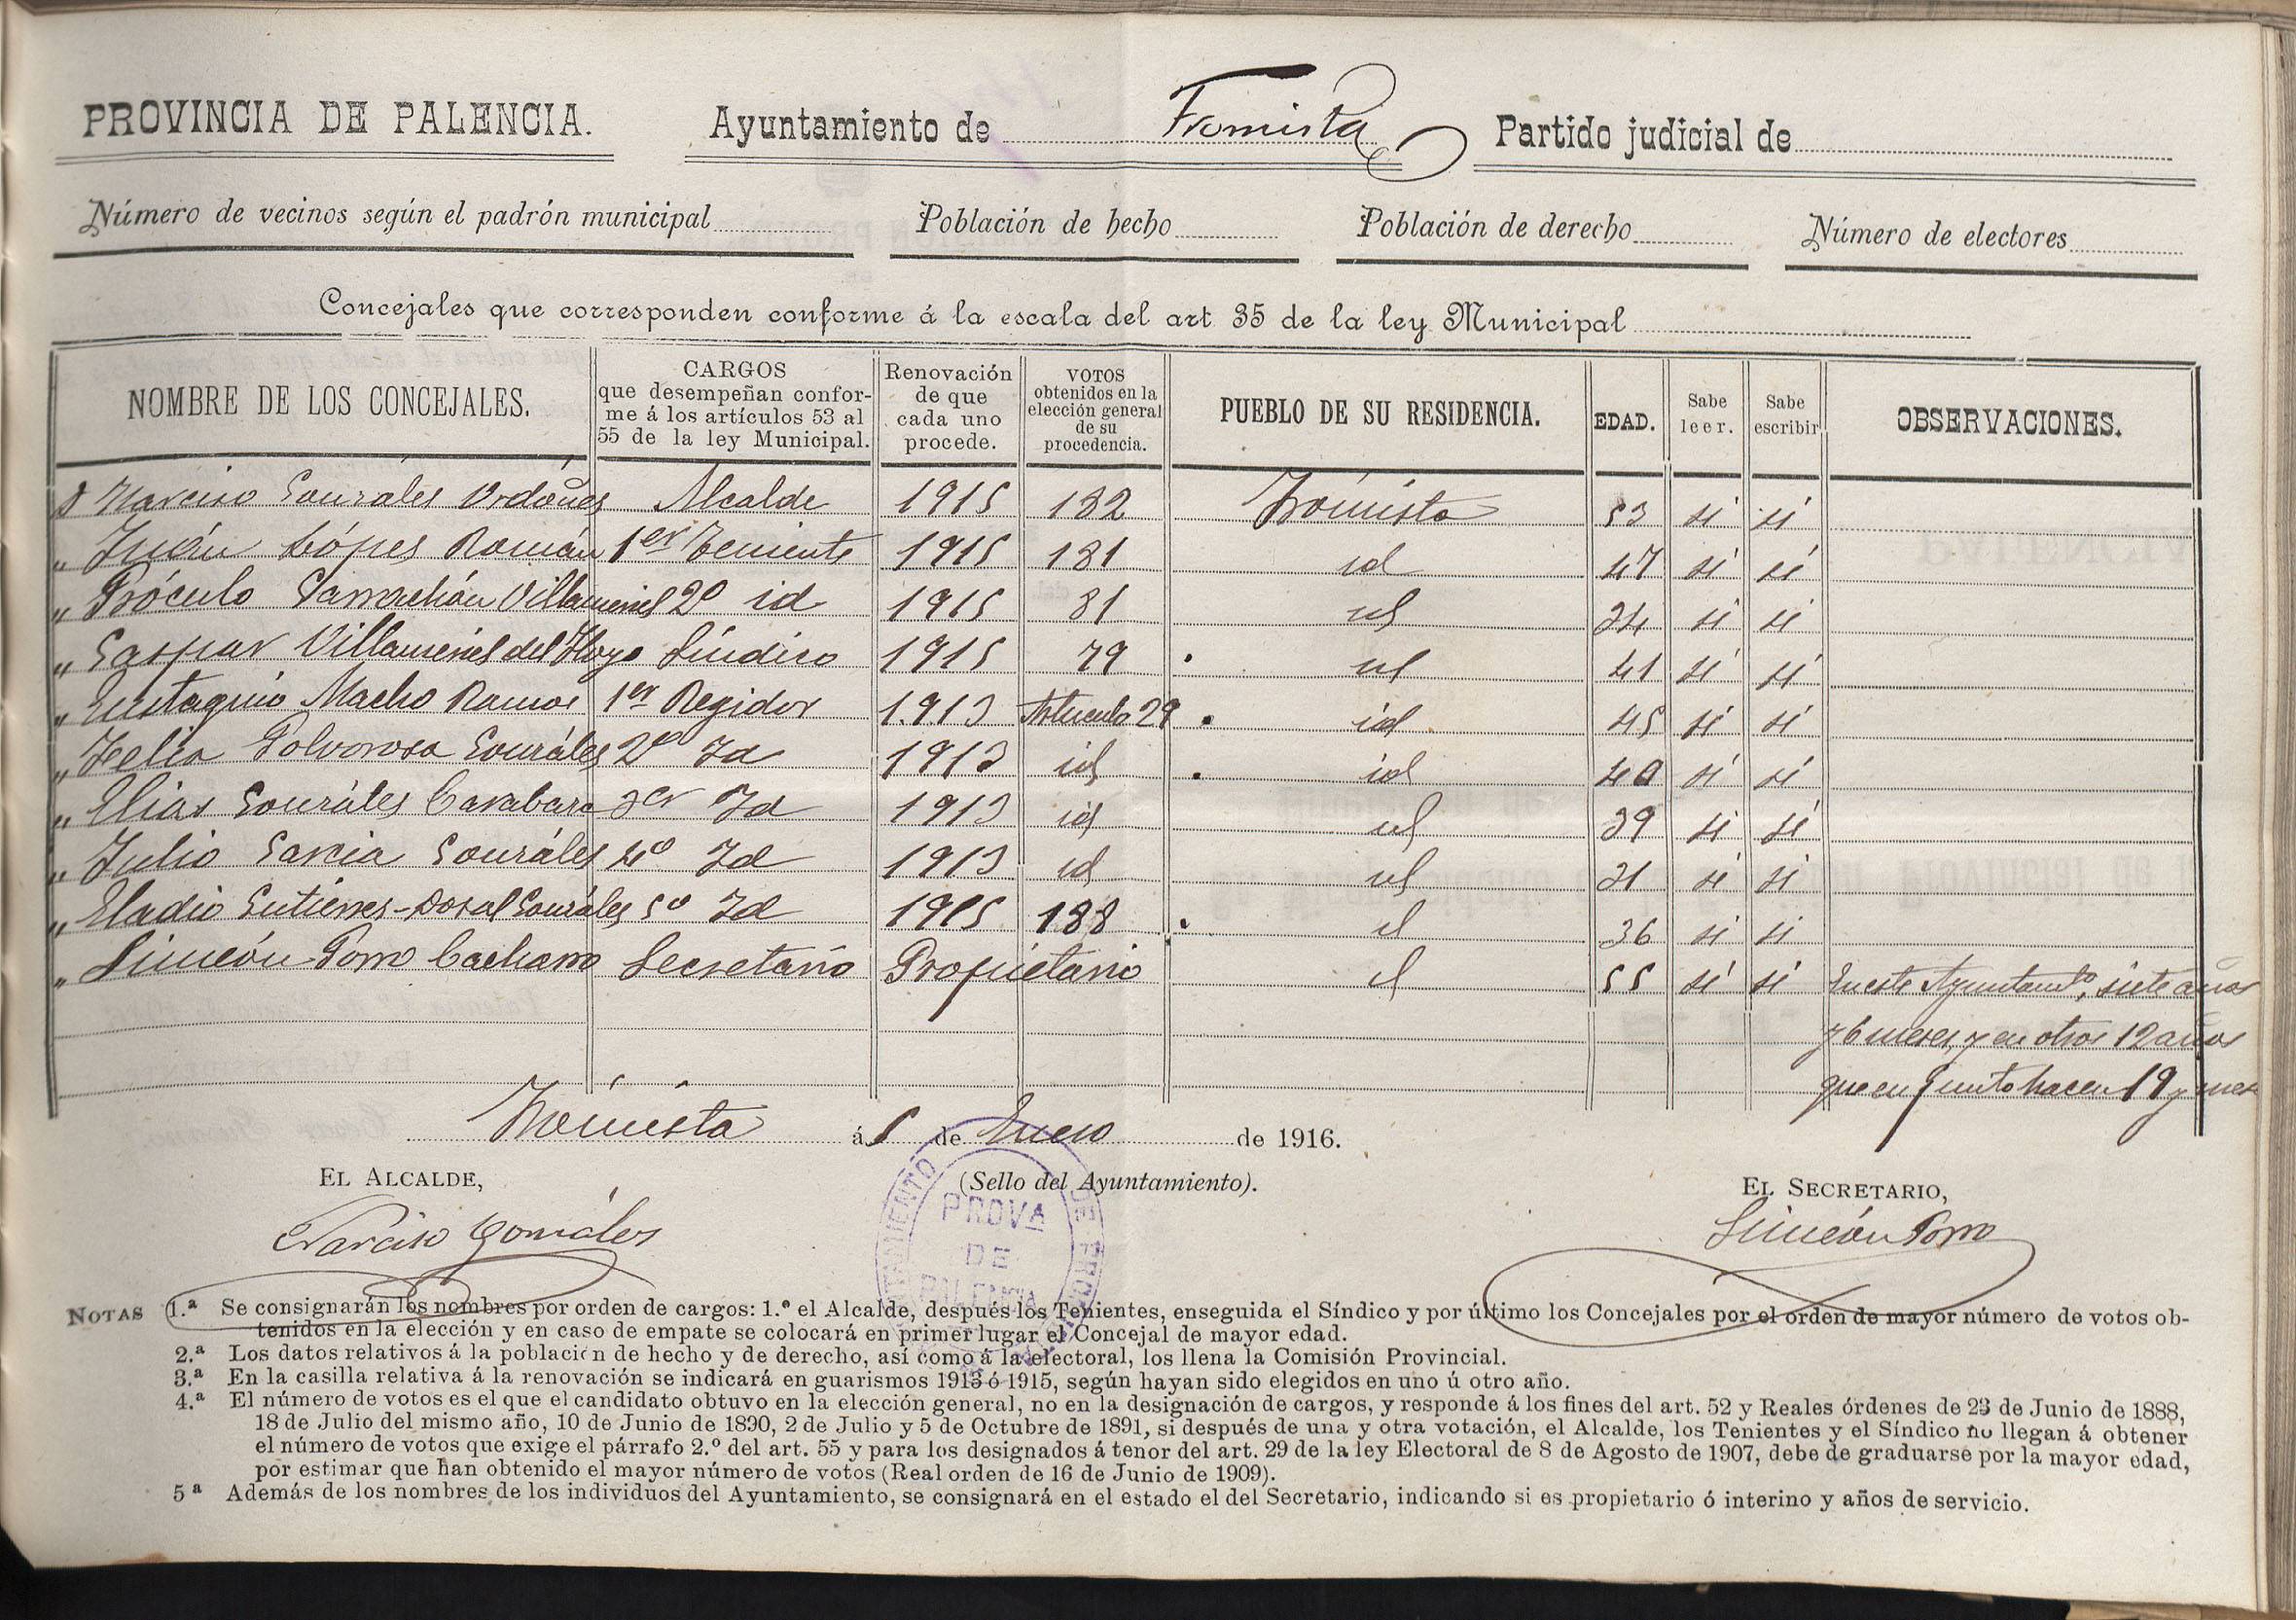 PROVINCIA DE PALENCIA. Ayuntamiento de Fromista Partido judicial de
Número de vecinos según el padrón municipal Población de hecho Población de derecho Número de electores
Concejales que corresponden conforme á la escala del art 35 de la ley Municipal
NOMBRE DE LOS CONCEJALES. CARGOS que desempeñan confor-me á los artículos 53 al 55 de la ley Municipal. Renovación de que cada uno procede. VOTOS obtenidos en la elección general de su procedencia. PUEBLO DE SU RESIDENCIA. EDAD. Sabe leer. Sabe escribir OBSERVACIONES.
D Narciso Gonzáles Ordóñes Alcalde 1915 132 Frómista 53 si si
" Julián López Román 1er Teniente 1915 131 id 47 si si
" Próculo Villameriel 2º id 1915 81 id 34 si si
" Gaspar Villameriel del Hoyo Síndico 1915 79 id 41 si si
" Eustaquio Macho Ramos 1er Regidor 1913 Artículo 29 id 45 si si
" Felix Polvorosa Gonzáles 2º Id 1913 id id 40 si si
" Elias Gonzáles 3er Id 1913 id id 39 si si
" Julio Garcia Gonzáles 4º Id 1913 id id 31 si si
" Eladio Gutierres-Dosal Gonzáles 5º Id 1915 138 id 36 si si
" Simeón Porro Cacharro Secretario Propietario id 55 si si En este Ayuntamto, siete años
y 6 meses, y en otros 12 años
que en junto hacen 19 y
Frómista á 1 de Enero de 1916.
EL ALCALDE, (Sello del Ayuntamiento). EL SECRETARIO,
Narciso Gonzáles Simeón Porro
AYUNTAMIENTO DE FROMISTA
PROVA
DE
PALENCIA
NOTAS 1.ª Se consignarán los nombres por orden de cargos: 1.º el Alcalde, después los Tenientes, enseguida el Síndico y por último los Concejales por el orden de mayor número de votos ob-
tenidos en la elección y en caso de empate se colocará en primer lugar el Concejal de mayor edad.
2.ª Los datos relativos á la población de hecho y de derecho, así como á la electoral, los llena la Comisión Provincial.
3.ª En la casilla relativa á la renovación se indicará en guarismos 1913 ó 1915, según hayan sido elegidos en uno ú otro año.
4.ª El número de votos es el que el candidato obtuvo en la elección general, no en la designación de cargos, y responde á los fines del art. 52 y Reales órdenes de 23 de Junio de 1888,
18 de Julio del mismo año, 10 de Junio de 1890, 2 de Julio y 5 de Octubre de 1891, si después de una y otra votación, el Alcalde, los Tenientes y el Síndico no llegan á obtener
el número de votos que exige el párrafo 2.º del art. 55 y para los designados á tenor del art. 29 de la ley Electoral de 8 de Agosto de 1907, debe de graduarse por la mayor edad,
por estimar que han obtenido el mayor número de votos (Real orden de 16 de Junio de 1909).
5ª Además de los nombres de los individuos del Ayuntamiento, se consignará en el estado el del Secretario, indicando si es propietario ó interino y años de servicio.